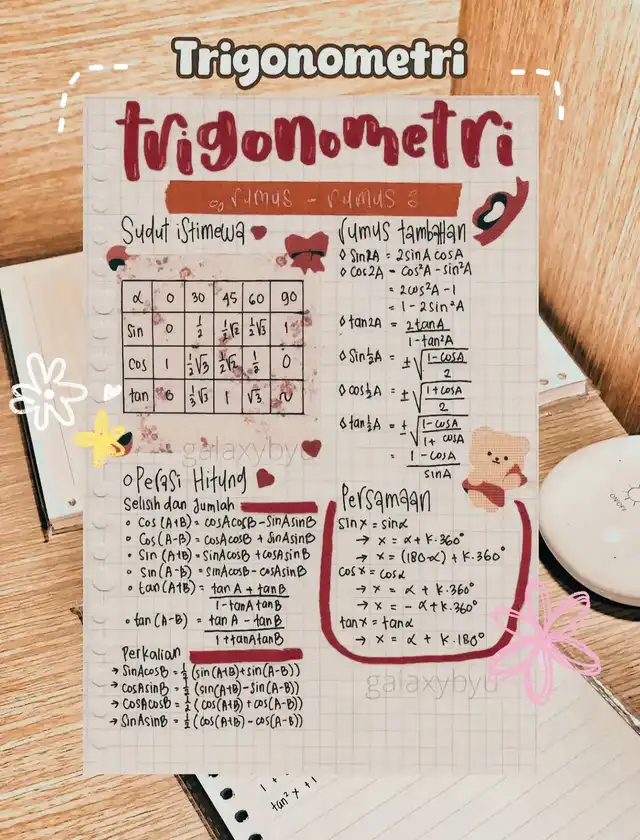 Trigonometri
trigonometri
rumus - rumus
Sudut istimewa
α 0 30 45 60 90
Sin 0 1/2 1/2√2 1/2√3 1
Cos 1 1/2√3 1/2√2 1/2 0
tan 0 1/3√3 1 √3 ~
galaxybyu
rumus tambahan
◊ Sin2A = 2sinA cosA
◊ Cos2A = cos²A - sin²A
= 2cos²A - 1
= 1 - 2sin²A
◊ tan2A = 2tanA / 1-tan²A
◊ Sin½A = ±√(1-cosA / 2)
◊ cos½A = ±√(1+cosA / 2)
◊ tan½A = ±√(1-cosA / 1+cosA)
= 1-cosA / sinA
Operasi Hitung
Selisih dan Jumlah
• Cos (A+B) = cosAcosB - SinAsinB
• Cos (A-B) = cosAcosB + SinAsinB
• Sin (A+B) = sinAcosB + cosAsinB
• Sin (A-B) = sinAcosB - cosAsinB
• tan (A+B) = tanA + tanB / 1-tanAtanB
• tan (A-B) = tanA - tanB / 1+tanAtanB
Perkalian
→ SinAcosB = ½ (sin(A+B)+sin(A-B))
→ cosAsinB = ½ (sin(A+B)-sin(A-B))
→ CosAcosB = ½ (cos(A+B)+cos(A-B))
→ SinAsinB = ½ (cos(A+B)-cos(A-B))
Persamaan
sin x = sin α
→ x = α + k.360°
→ x = (180-α) + k.360°
cos x = cos α
→ x = α + k.360°
→ x = -α + k.360°
tan x = tan α
→ x = α + k.180°
galaxybyu
ON/OFF
tan² x + 1